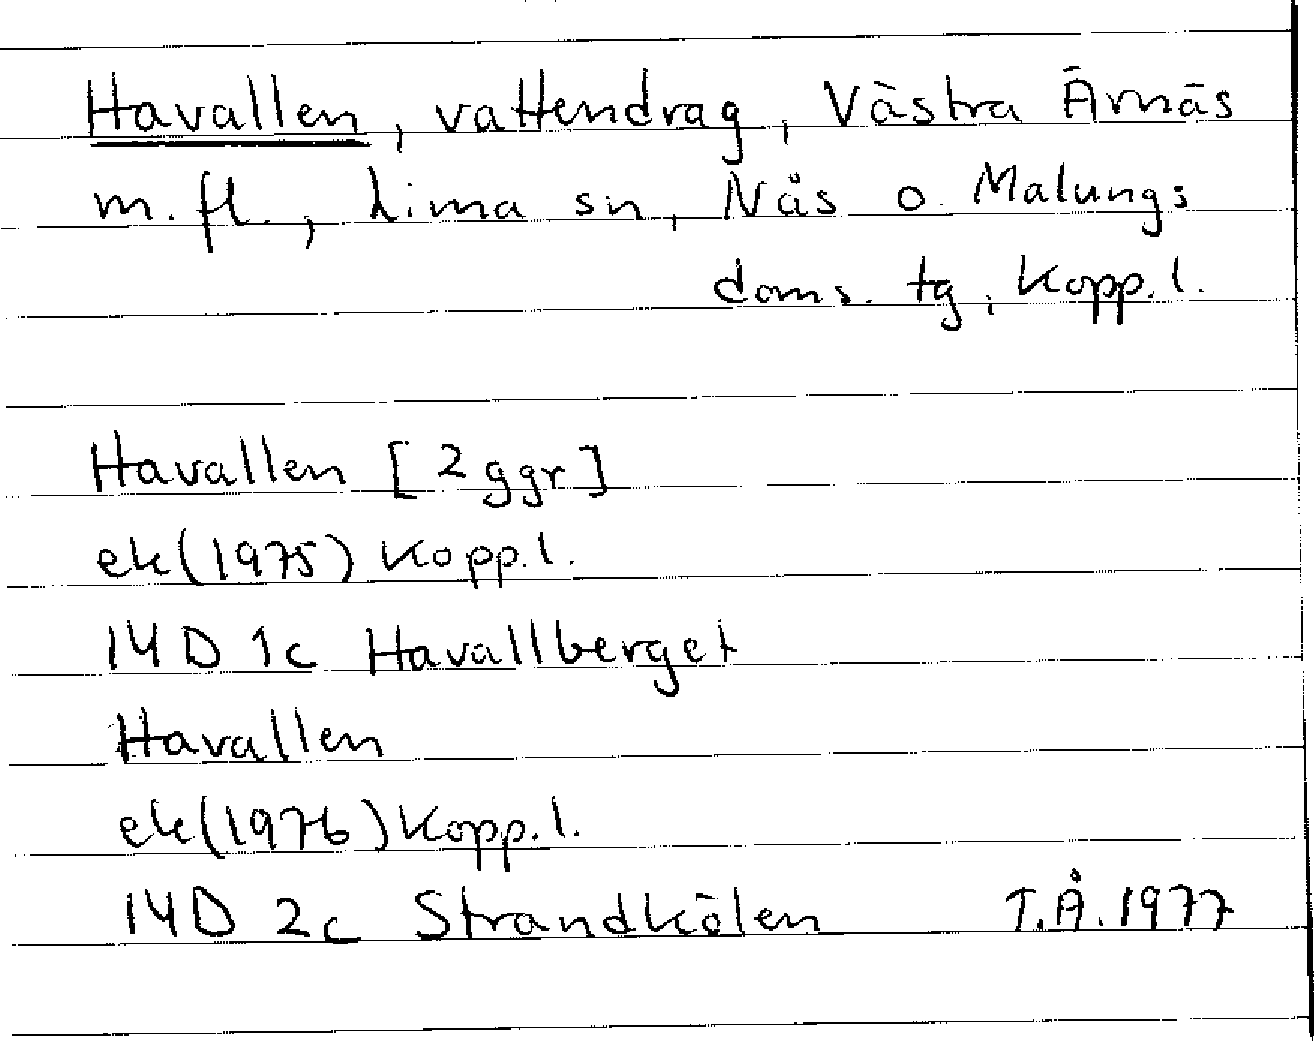 Havallen, vattendrag, Västra Ärnäs
m. fl., Lima sn, Nås o. Malungs
doms. tg, Kopp.l.
Havallen [2 ggr]
ek(1975) Kopp.l.
14D 1c Havallberget
Havallen
ek(1976) Kopp.l.
14D 2c Strandkölen T.Å.1977